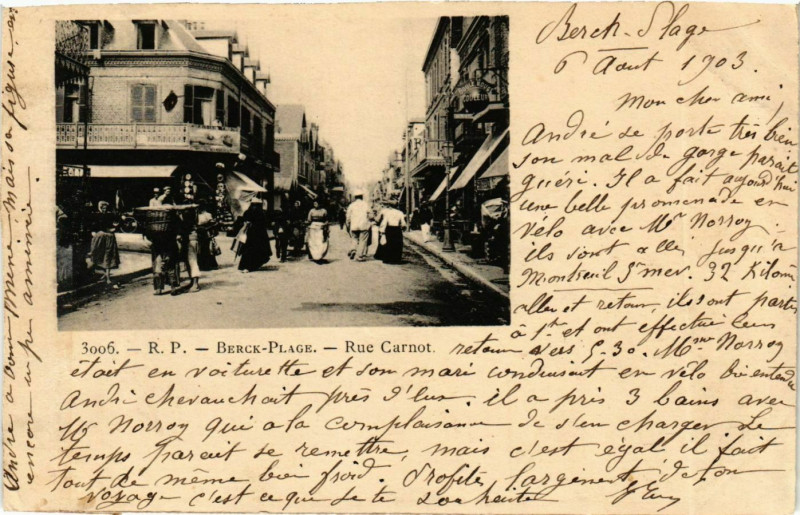 Berck-Plage
6 Aout 1903.
Mon cher ami,
André se porte très bien
son mal de gorge parait
guéri. Il a fait aujourd'hui
une belle promenade en
vélo avec Mr Norroy
ils sont allés jusqu'à
Montreuil s/ mer. 32 Kilom
aller et retour, ils sont partis
à 1h et ont effectué leur
retour vers 5.30. Mme Norroy
était en voiturette et son mari conduisait en vélo bien entendu
André chevauchait près d'eux. il a pris 3 bains avec
Mr Norroy qui a la complaisance de s'en charger. Le
temps parait se remettre, mais c'est égal il fait
tout de même bien froid. Profite largement de ton
voyage c'est ce que je te souhaite
3006. — R. P. — BERCK-PLAGE. — Rue Carnot.
André a bonne mine mais sa figure est
encore un peu amincie.
COIFFEUR